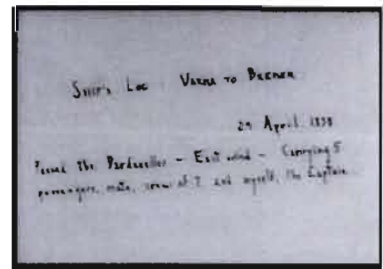 Ship's Log : Varna to Bremen
29 April 1838
Passed the Dardanelles – East wind – Carrying 5
passengers, mate, crew of 7 and myself, the Captain.